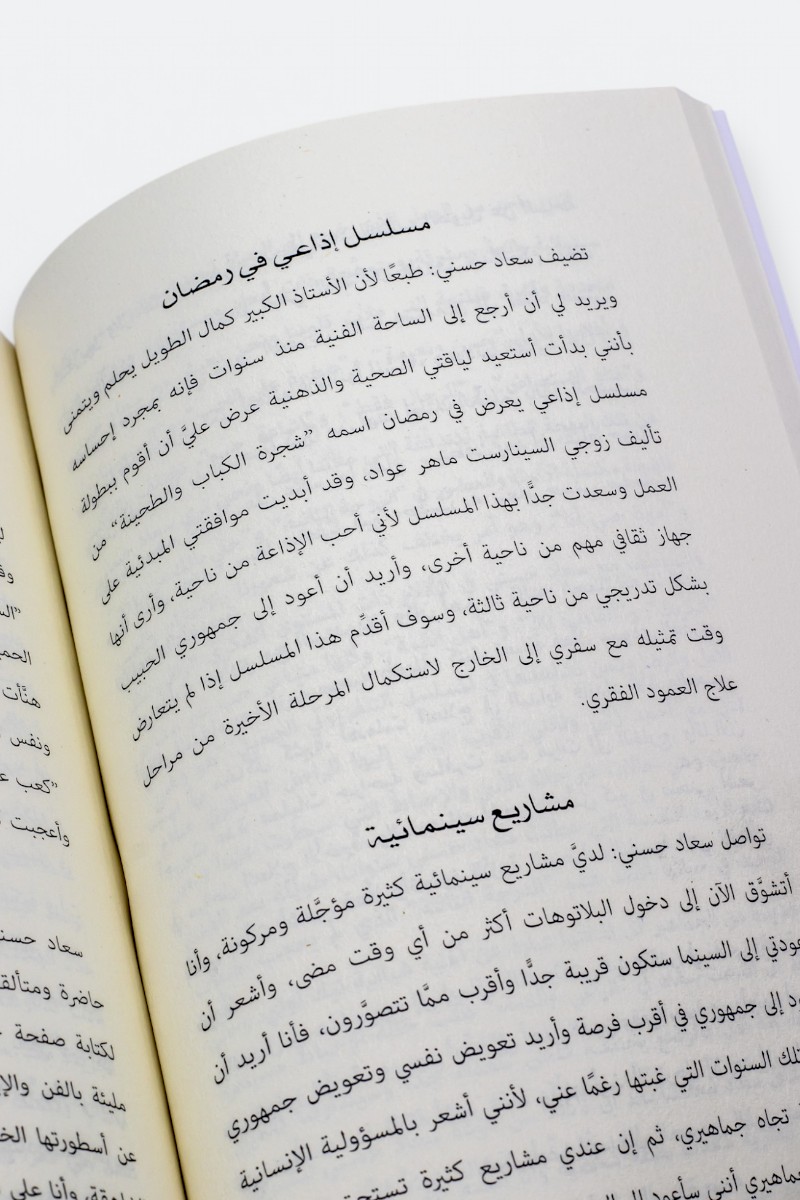 مسلسل إذاعي في رمضان
تضيف سعاد حسني: طبعًا لأن الأستاذ الكبير كمال الطويل يحلم ويتمنى
ويريد لي أن أرجع إلى الساحة الفنية منذ سنوات فإنه بمجرد إحساسه
بأنني بدأت أستعيد لياقتي الصحية والذهنية عرض عليَّ أن أقوم ببطولة
مسلسل إذاعي يعرض في رمضان اسمه "شجرة الكباب والطحينة" من
تأليف زوجي السينارست ماهر عواد، وقد أبديت موافقتي المبدئية على
العمل وسعدت جدًّا بهذا المسلسل لأني أحب الإذاعة من ناحية، وأرى أنها
جهاز ثقافي مهم من ناحية أخرى، وأريد أن أعود إلى جمهوري الحبيب
بشكل تدريجي من ناحية ثالثة، وسوف أقدِّم هذا المسلسل إذا لم يتعارض
وقت تمثيله مع سفري إلى الخارج لاستكمال المرحلة الأخيرة من مراحل
علاج العمود الفقري.
مشاريع سينمائية
تواصل سعاد حسني: لديَّ مشاريع سينمائية كثيرة مؤجَّلة ومركونة، وأنا
أتشوَّق الآن إلى دخول البلاتوهات أكثر من أي وقت مضى، وأشعر أن
عودتي إلى السينما ستكون قريبة جدًّا وأقرب ممَّا تتصوَّرون، فأنا أريد أن
إلى جمهوري في أقرب فرصة وأريد تعويض نفسي وتعويض جمهوري
السنوات التي غبتها رغمًا عني، لأنني أشعر بالمسؤولية الإنسانية
تجاه جماهيري، ثم إن عندي مشاريع كثيرة
أنني سأعود
الحم
هنَّأت
ونفس
"كعب
وأعجبت
سعاد حسن
حاضرة ومتألق
لكتابة صفحة
مليئة بالفن
عن أسطورتها
وأنا على